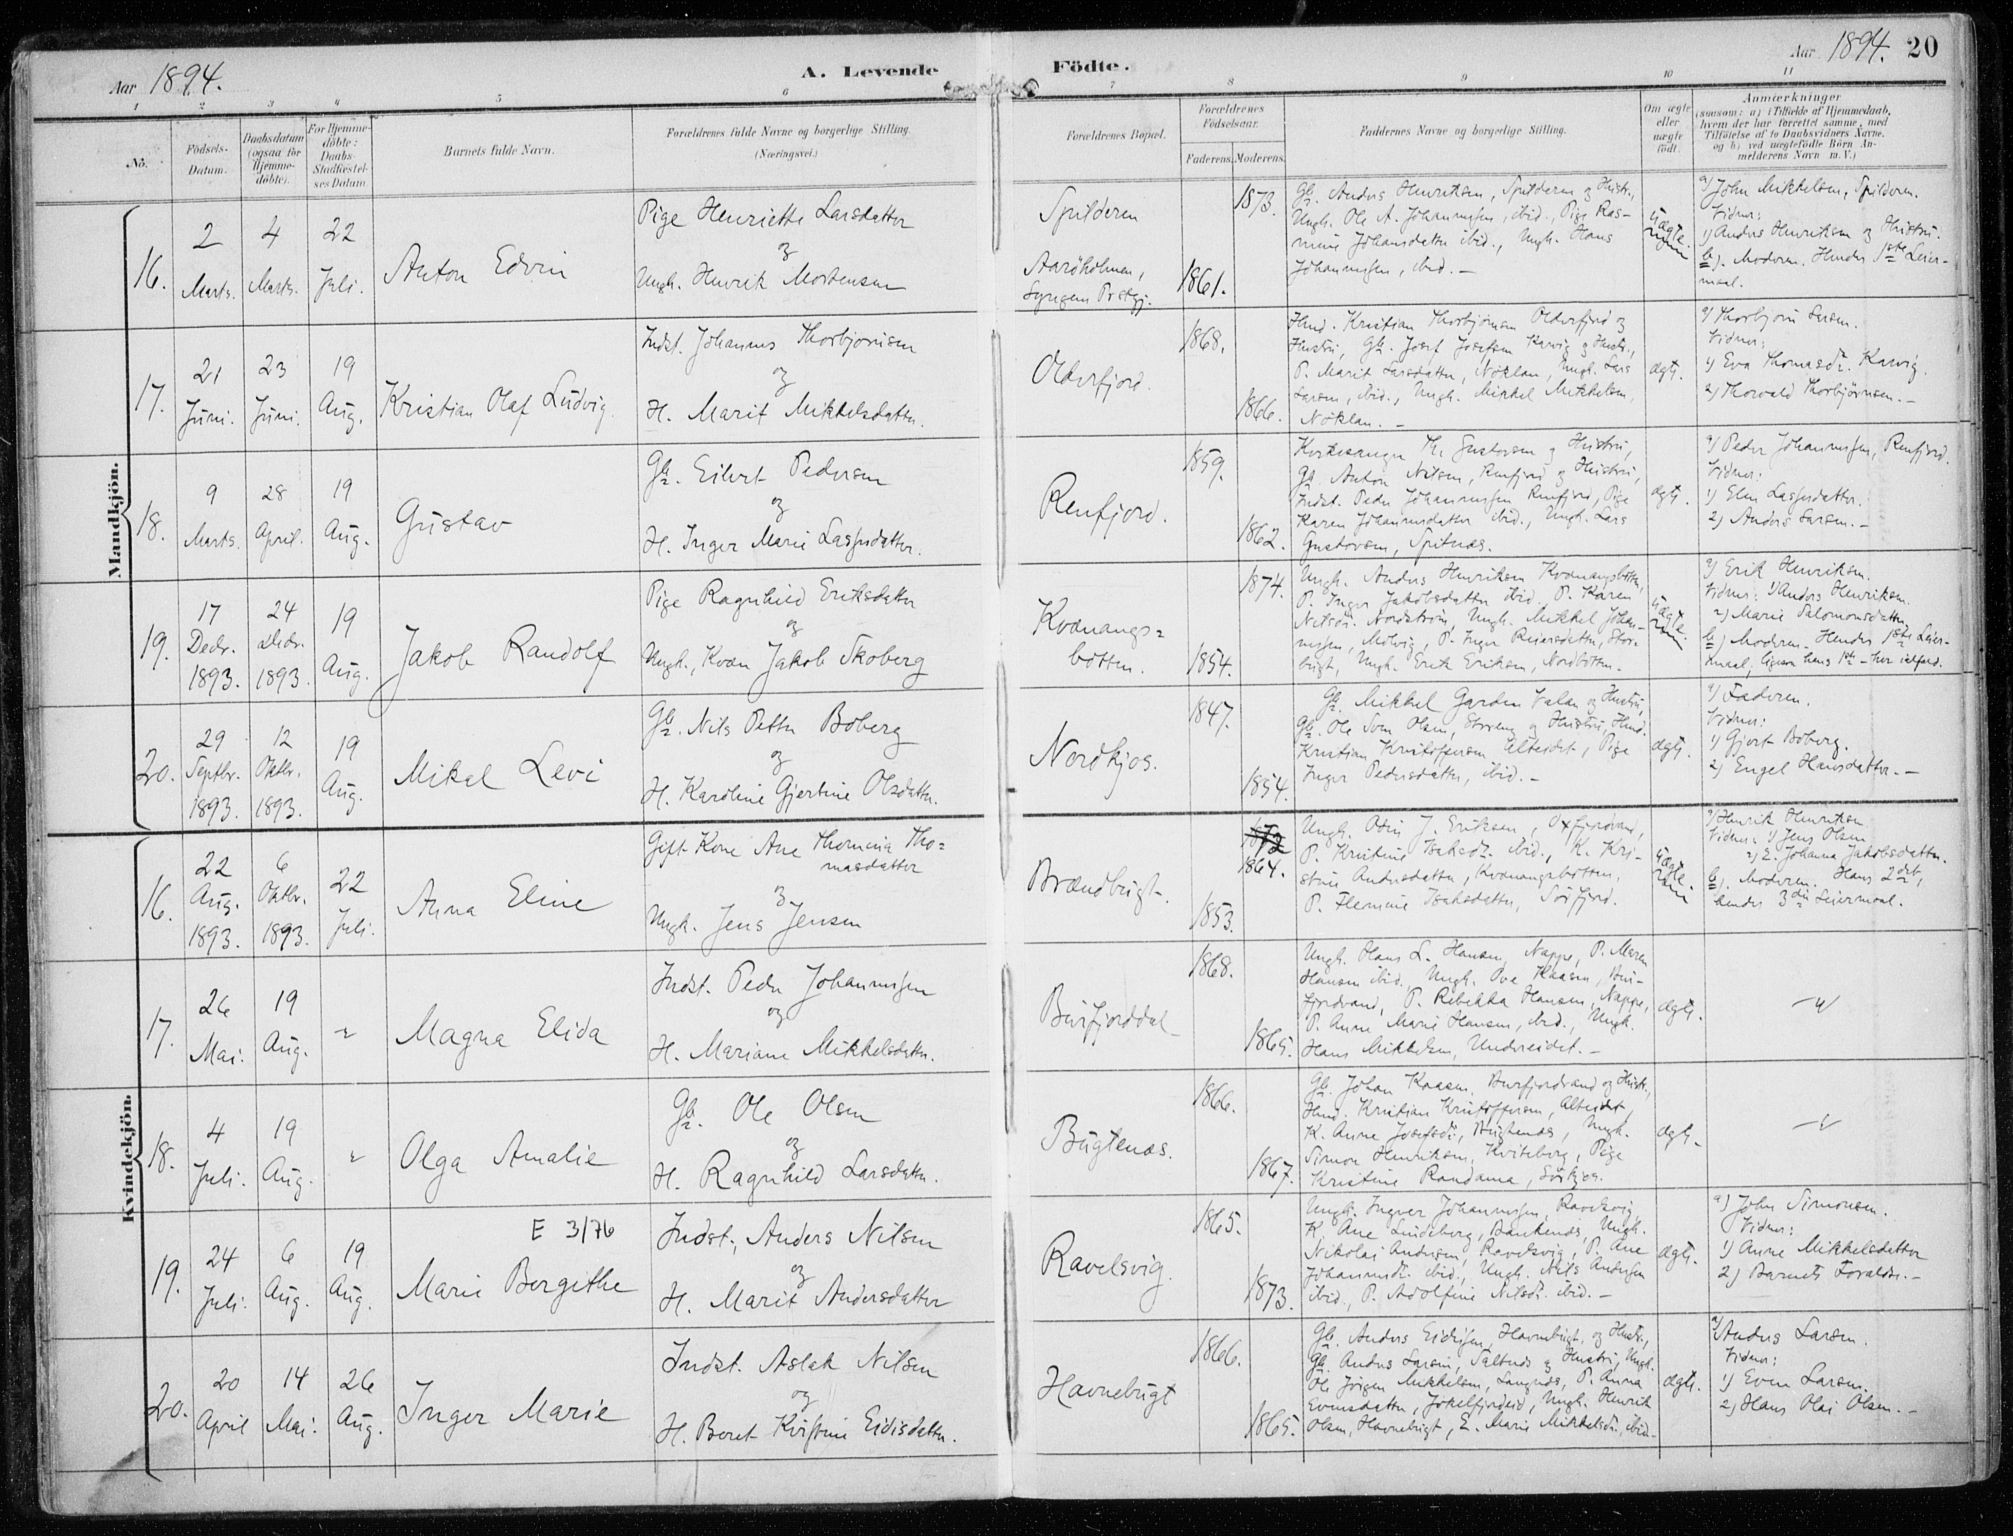 Aar 1894.
A. Levende Födte.
Aar 1894. 20
1 2 3 4 5 6 7 8 9 10 11
No.
Födsels-
Datum.
Daabsdatum
(ogsaa for
Hjemme-
döbte).
For Hjemme-
döbte:
Daabs-
Stadfæstel-
ses Datum
Barnets fulde Navn.
Forældrenes fulde Navne og borgerlige Stilling.
(Næringsvei.)
Forældrenes Bopæl.
Forældrenes
Födselsaar.
Faderens. Moderens.
Faddernes Navne og borgerlige Stilling.
Om ægte
eller
uægte
födt.
Anmærkninger
(saasom: a) i Tilfælde af Hjemmedaab,
hvem der har forrettet samme, med
Tilföielse af to Daabsvidners Navne,
og b) ved uægtefödte Börn An-
melderens Navn m. V.)
Mandkjön.
16.
2
Marts.
4
Marts.
22
Juli.
Anton Edvin
Pige Henriette Larsdatter
og
Ungk. Henrik Mortensen
Spilderen
Aaröholmen,
Lyngens Prstgj.
1873.
1861.
Gb. Anders Henriksen, Spilderen og Hustr.,
Ungk. Ole A. Johannesen, ibid., Pige Ras-
mine Johansdatter ibid., Ungk. Hans
Johannesen, ibid. —
Uægte.
a) John Mikkelsen, Spilderen.
Vidner:
1) Anders Henriksen og Hustru.
b). Moderen. Hendes 1ste Leier-
maal.
17.
21
Juni.
23
Juni.
19
Aug.
Kristian Olaf Ludvig.
Indst. Johannes Thorbjørnsen
og
H. Marit Mikkelsdatter.
Olderfjord.
1868.
1866.
Hmd. Kristian Thorbjørnsen Olderfjord og
Hustru, Gb. Josef Josefsen Karvig og Hustr.,
P. Marit Larsdatter, Nöklan, Ungk. Lars
Larsen, ibid., Ungk. Mikkel Mikkelsen,
Nöklan. —
ægte.
a) Thorbjörn Larsen.
Vidner:
1) Eva Thomasdr. Karvig
2) Thorvald Thorbjörnsen. —
18.
9
Marts.
28
April.
19
Aug.
Gustav
Gb. Eilert Pedersen
og
H. Inger Marie Lassesdatter.
Renfjord.
1859.
1862.
Kirkesanger Th. Gustavsen og Hustru,
Gb. Anton Nilsen, Renfjord og Hustru,
Indst. Peder Johannesen Renfjord, Pige
Karen Johannesdatter ibid., Ungk. Lars
Gustavsen, Spitnæs.
ægte.
a) Peder Johannesen, Renfjord.
Vidner:
1) Elen Lassesdatter.
2) Anders Larsen. —
19.
17
Decbr.
1893.
24
Decbr.
1893.
19
Aug.
Jakob Randolf
Pige Ragnhild Eriksdatter
og
Ungk., Kvæn Jakob Skoberg
Kvænangs=
botten.
1874.
1854.
Ungk. Anders Henriksen Kvænangsbotten,
P. Inger Jakobsdatter ibid. P. Karen
Nilsdr. Nordström, Ungk. Mikkel Johan-
nesen, Molvig, P. Inger Reiersdatter, Stor-
bugt, Ungk. Erik Eriksen, Nordbotten.
Uægte.
a) Erik Henriksen.
Vidner: 1) Anders Henriksen.
2) Marie Salomonsdatter
b) Moderen. Hendes 1ste Leier-
maal,
20.
29
Septbr.
1893.
12
Oktbr.
1893.
19
Aug.
Mikal Levi
Gb. Nils Petter Boberg
og
H. Karoline Gjertine Olsdatter.
Nordkjos.
1847.
1854.
Gb. Mikkel Garden Valan og Hustru,
Gb. Ole Som Olsen, Storeng og Hustru, Hmd.
Kristian Kristoffersen Alteidet, Pige
Inger Pedersdatter, ibid. —
ægte.
a) Faderen.
Vidner:
1) Gjert Boberg.
2) Engel Hansdatter. —
Kvindekjön.
16.
22
Aug.
1893.
6
Oktbr.
1893.
22
Juli.
Anna Eline
Gift Kone Ane Thomina Tho=
masdatter
og
Ungk. Jens Jensen
Brændbugt.
1864.
1853.
Ungk. Odin J. Eriksen,
P. Kristine Isaksdr. ibid., K. Kri-
stine Andersdatter, Kvænangsbotten,
P. Flemine Isaksdatter, Sörfjord.
Uægte.
a) Henrik Henriksen
Vidner: 1) Jens Olsen
2) E. Johanna Jakobsdatter.
b). Moderen. Hans 2det,
hendes 3die Leiermaal.
17.
26
Mai.
19
Aug.
"
Magna Elida
Indst. Peder Johannesen
og
H. Mariane Mikkelsdatter.
Burfjorddal
1868.
1865.
Ungk. Hans L. Hansen, Nappe, P. Maren
Hansen ibid., Ungk. Ove Kaasen, Bur-
fjordvand, P. Rebekka Hansen, Nappe,
P. Anne Marie Hansen, ibid., Ungk.
Hans Mikkelsen, Undereidet. —
ægte.
"
18.
4
Juli.
19
Aug.
"
Olga Amalie
Gb. Ole Olsen
og
H. Ragnhild Larsdatter.
Bugtenæs.
1866.
1867.
Gb. Johan Kaasen, Burfjordvand og Hustr.,
Hmd. Kristian Kristoffersen, Alteidet,
K. Anne Josefsdr., Bugtenæs, Ungk.
Simon Henriksen, Kviteberg, Pige
Kristine Randama, Sörkjos.
ægte.
"
19.
24
Juli.
6
Aug.
19
Aug.
E 3/76
Marie Bergithe
Indst., Anders Nilsen
og
H. Marit Andersdatter
Ravelsvig.
1865.
1873.
Ungk. Ingver Johannesen, Ravelsvig,
K. Ane Lindeberg, Bankenæs, Ungk.
Nikolai Andersen, Ravelsvig, P. Ane
Johannesdr. ibid., Ungk. Nils Andersen
ibid., P. Adolfine Nilsdr. ibid. —
ægte.
a) John Simonsen.
Vidner:
1) Anne Mikkelsdatter
2) Barnets Forældre. —
20.
20
April
14
Mai.
26
Aug.
Inger Marie
Indst. Aslak Nilsen
og
H. Beret Kristine Eidisdatter.
Havnebugt
1866.
1865.
Gb. Anders Eidisen, Havnebugt, og Hustr.,
Gb. Anders Larsen, Saltnæs og Hustru, Ungk.
Ole Jörgen Mikkelsen, P. Anna
Evensdatter, Jökelfjordeid, Ungk. Henrik
Olsen, Havnebugt, E. Marie Mikkelsdr., ibid.
ægte.
a) Anders Larsen.
Vidner:
1) Even Larsen.
2) Hans Olai Olsen. —